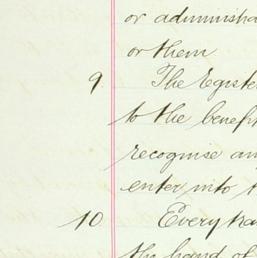 or administra
or them
9 The Registe
to the benefi
recognise an
enter into t
10 Every tra
the hand of